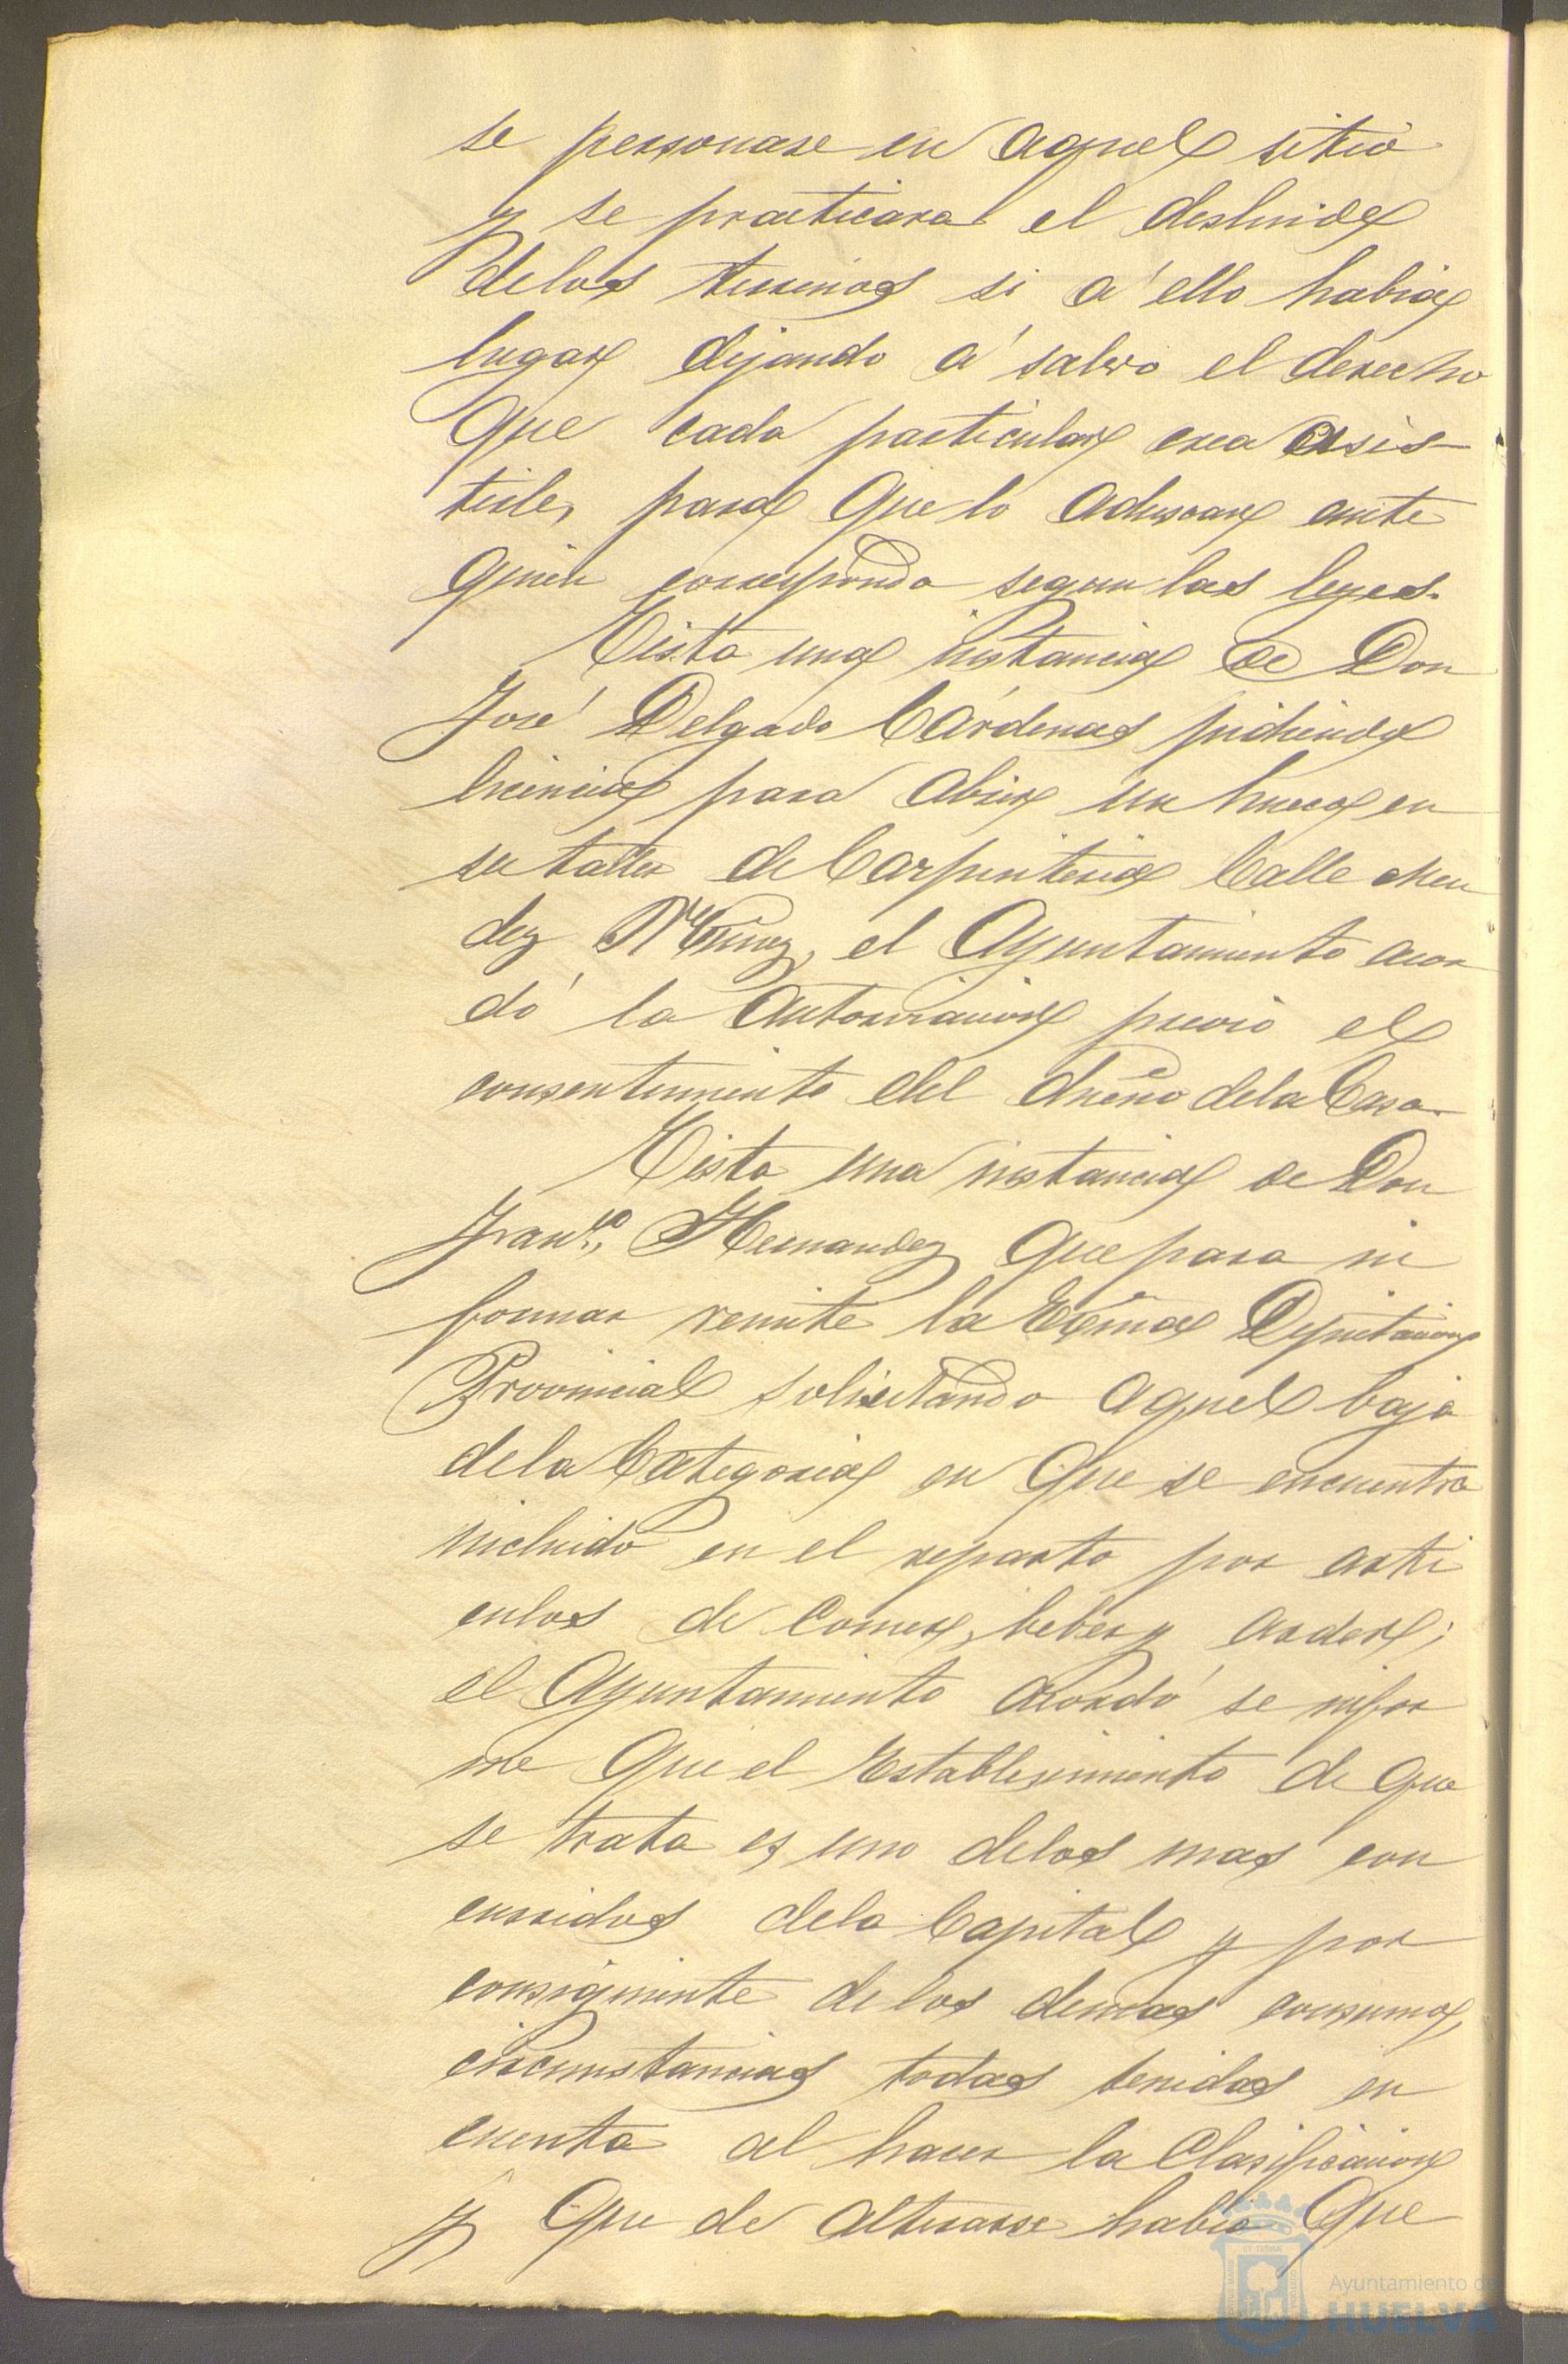 se personase en aquel sitio
y se practicara el deslinde
delos terrenos si á ello habia
lugar dejando á salvo el derecho
que cada particular crea asis-
tirle, para que lo aduzcan ante
quien corresponda segun las leyes.
Vista una instancia de Don
José Delgado Cárdenas pidiendo
licencia para abrir un hueco en
su taller de Carpinteria Calle Men
dez Nuñez, el Ayuntamiento acor
dó la autorizacion previo el
consentimiento del dueño dela Casa.
Vista una instancia de Don
Franco, Hernandez que para in
formar remite la Exma Diputacion
Provincial solicitando aquel baja
dela Categoria en que se encuentra
incluido en el reparto por arti
culos de comer, beber y arder;
el Ayuntamiento acordó se infor
me que el Establecimiento de que
se trata es uno delos mas con
curridos dela Capital y por
consiguiente de los demas consumos,
circunstancias todas tenidas en
cuenta al hacer la Clasificacion
y que de alterarse habia que
Ayuntamiento de
HUELVA